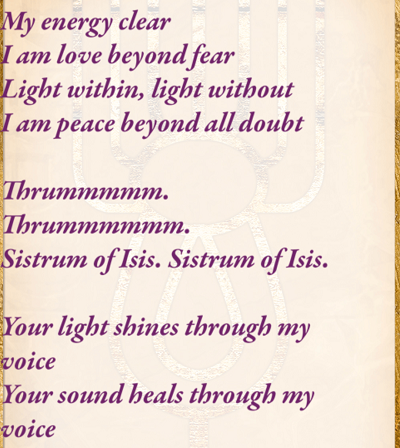 My energy clear
I am love beyond fear
Light within, light without
I am peace beyond all doubt
Thrummmmm.
Thrummmmmm.
Sistrum of Isis. Sistrum of Isis.
Your light shines through my
voice
Your sound heals through my
voice